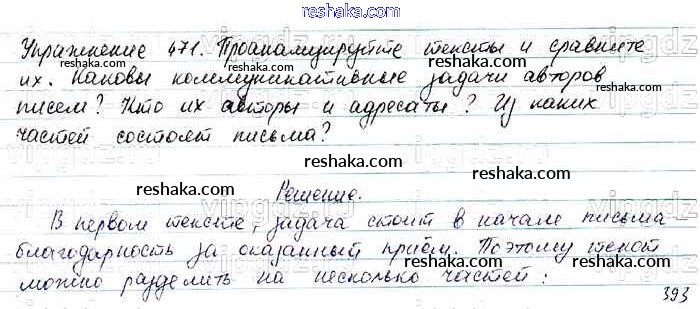 reshaka.com
Упражнение 471. Проанализируйте тексты и сравните
их. Каковы коммуникативные задачи авторов
писем? Кто их авторы и адресаты? Из каких
частей состоят письма?
Решение.
В первом тексте, задача стоит в начале письма
благодарность за оказанный приём. Поэтому текст
можно разделить на несколько частей:
393
reshaka.com
reshaka.com
reshaka.com
reshaka.com
reshaka.com
reshaka.com
reshaka.com
reshaka.com
reshaka.com
reshaka.com